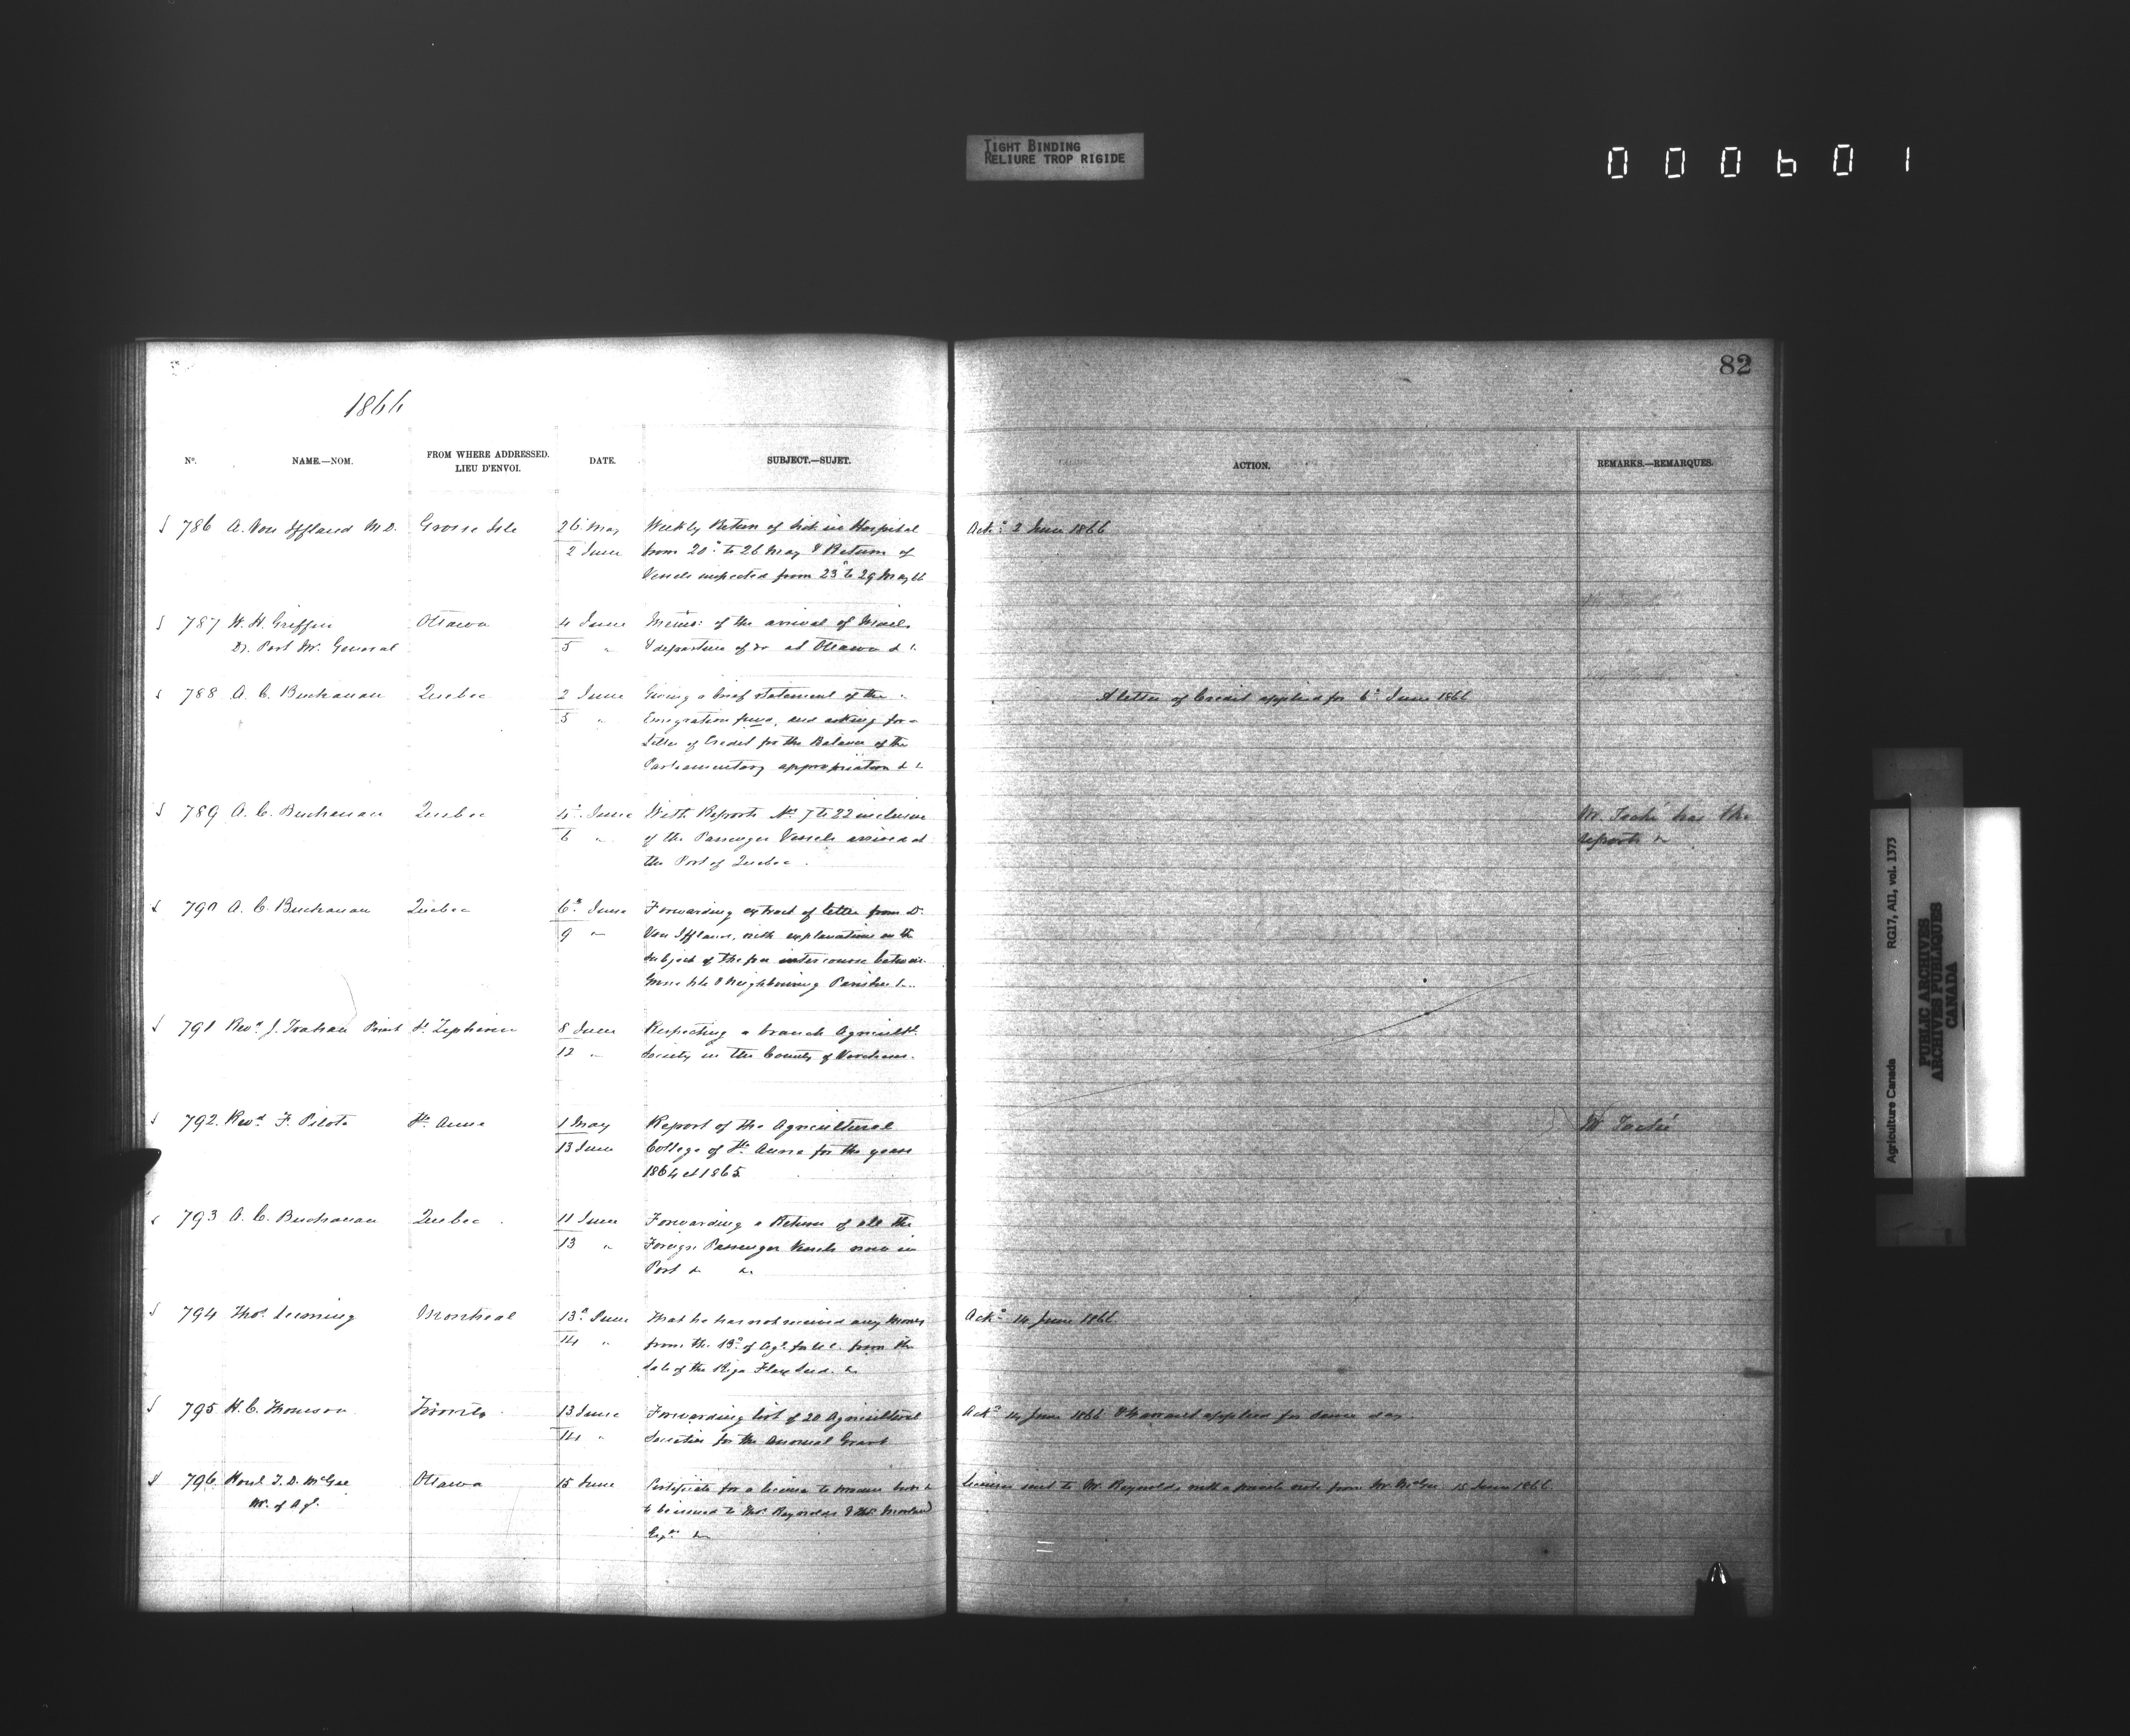 TIGHT BINDING
RELIURE TROP RIGIDE
000601
82
1866
No. NAME.—NOM. FROM WHERE ADDRESSED. LIEU D'ENVOI. DATE. SUBJECT.—SUJET. ACTION. REMARKS.—REMARQUES.
786 A. Von Iffland M.D. Grosse Isle 26 May Weekly Return of Sick in Hospital Ackd 2 June 1866
2 June from 20th to 26 May & Return of
Vessels inspected from 23d to 29 May 66
787 W. H. Griffin Ottawa 4 June Memo: of the arrival of Mails
Dy. Post Mr. General 5 " & departure of do at Ottawa &c
788 A. C. Buchanan Quebec 2 June Giving a brief statement of the A letter of Credit applied for 6th June 1866
5 " Emigration fund, and asking for a
Letter of Credit for the Balance of the
Parliamentary appropriation &c
789 A. C. Buchanan Quebec 4th June With Reports Nos 7 to 22 inclusive Mr. Taché has the
6 " of the Passenger Vessels arrived at reports &c
the Port of Quebec.
790 A. C. Buchanan Quebec 6th June Forwarding extract of letter from Dr
9 " Von Iffland, with explanations on the
subject of the free intercourse between
Grosse Isle & Neighbouring Parishes &c.
791 Revd J. Trahan Priest St Zephirin 8 June Respecting a branch Agricultl
12 " Society in the County of
792 Revd F. Pilote Ste Anne 1 May Report of the Agricultural Mr Taché
13 June College of Ste Anne for the years
1864 et 1865
793 A. C. Buchanan Quebec 11 June Forwarding a Return of all the
13 " Foreign Passenger Vessels now in
Port &c &c.
794 Thos. Leeming Montreal 13th June That he has not received any money Ackd 14 June 1866
14 " from the Bd of Agl. for U.C. from the
sale of the Riga Flax Seed. &c
795 H. C. Thomson Toronto 13 June Forwarding list of 20 Agricultural Ackd 14 June 1866 & Warrant applied for same day.
14 " Societies for the annual Grant
796 Honl T. D. McGee Ottawa 15 June Certificate for a license to Licenses sent to Mr. Reynolds with a private note from Mr. McGee 15 June 1866.
Mr. of Agl. to be issued to Mr Reynolds & Mr
Esqrs &c
Agriculture Canada RG17, AII, vol. 1373
PUBLIC ARCHIVES
ARCHIVES PUBLIQUES
CANADA